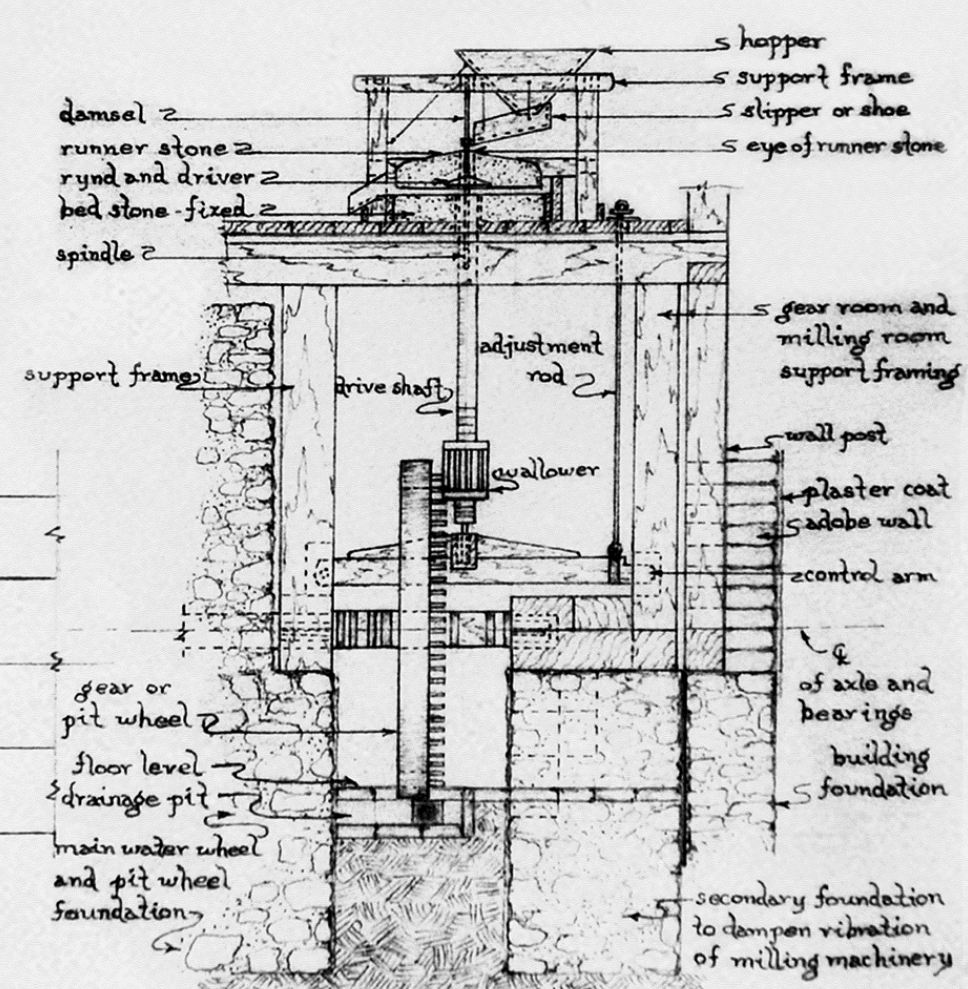 hopper
support frame
slipper or shoe
eye of runner stone
damsel
runner stone
rynd and driver
bed stone - fixed
spindle
gear room and
milling room
support framing
support frame
adjustment
rod
drive shaft
wallower
wall post
plaster coat
adobe wall
control arm
℄
of axle and
bearings
gear or
pit wheel
floor level
drainage pit
main water wheel
and pit wheel
foundation
building
foundation
secondary foundation
to dampen vibration
of milling machinery